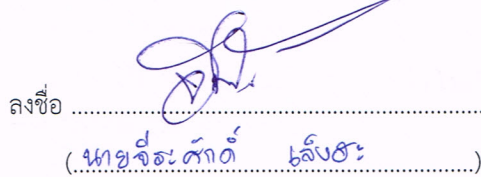 ลงชื่อ ........................................................
(นายจีระศักดิ์ เล็งฮะ)